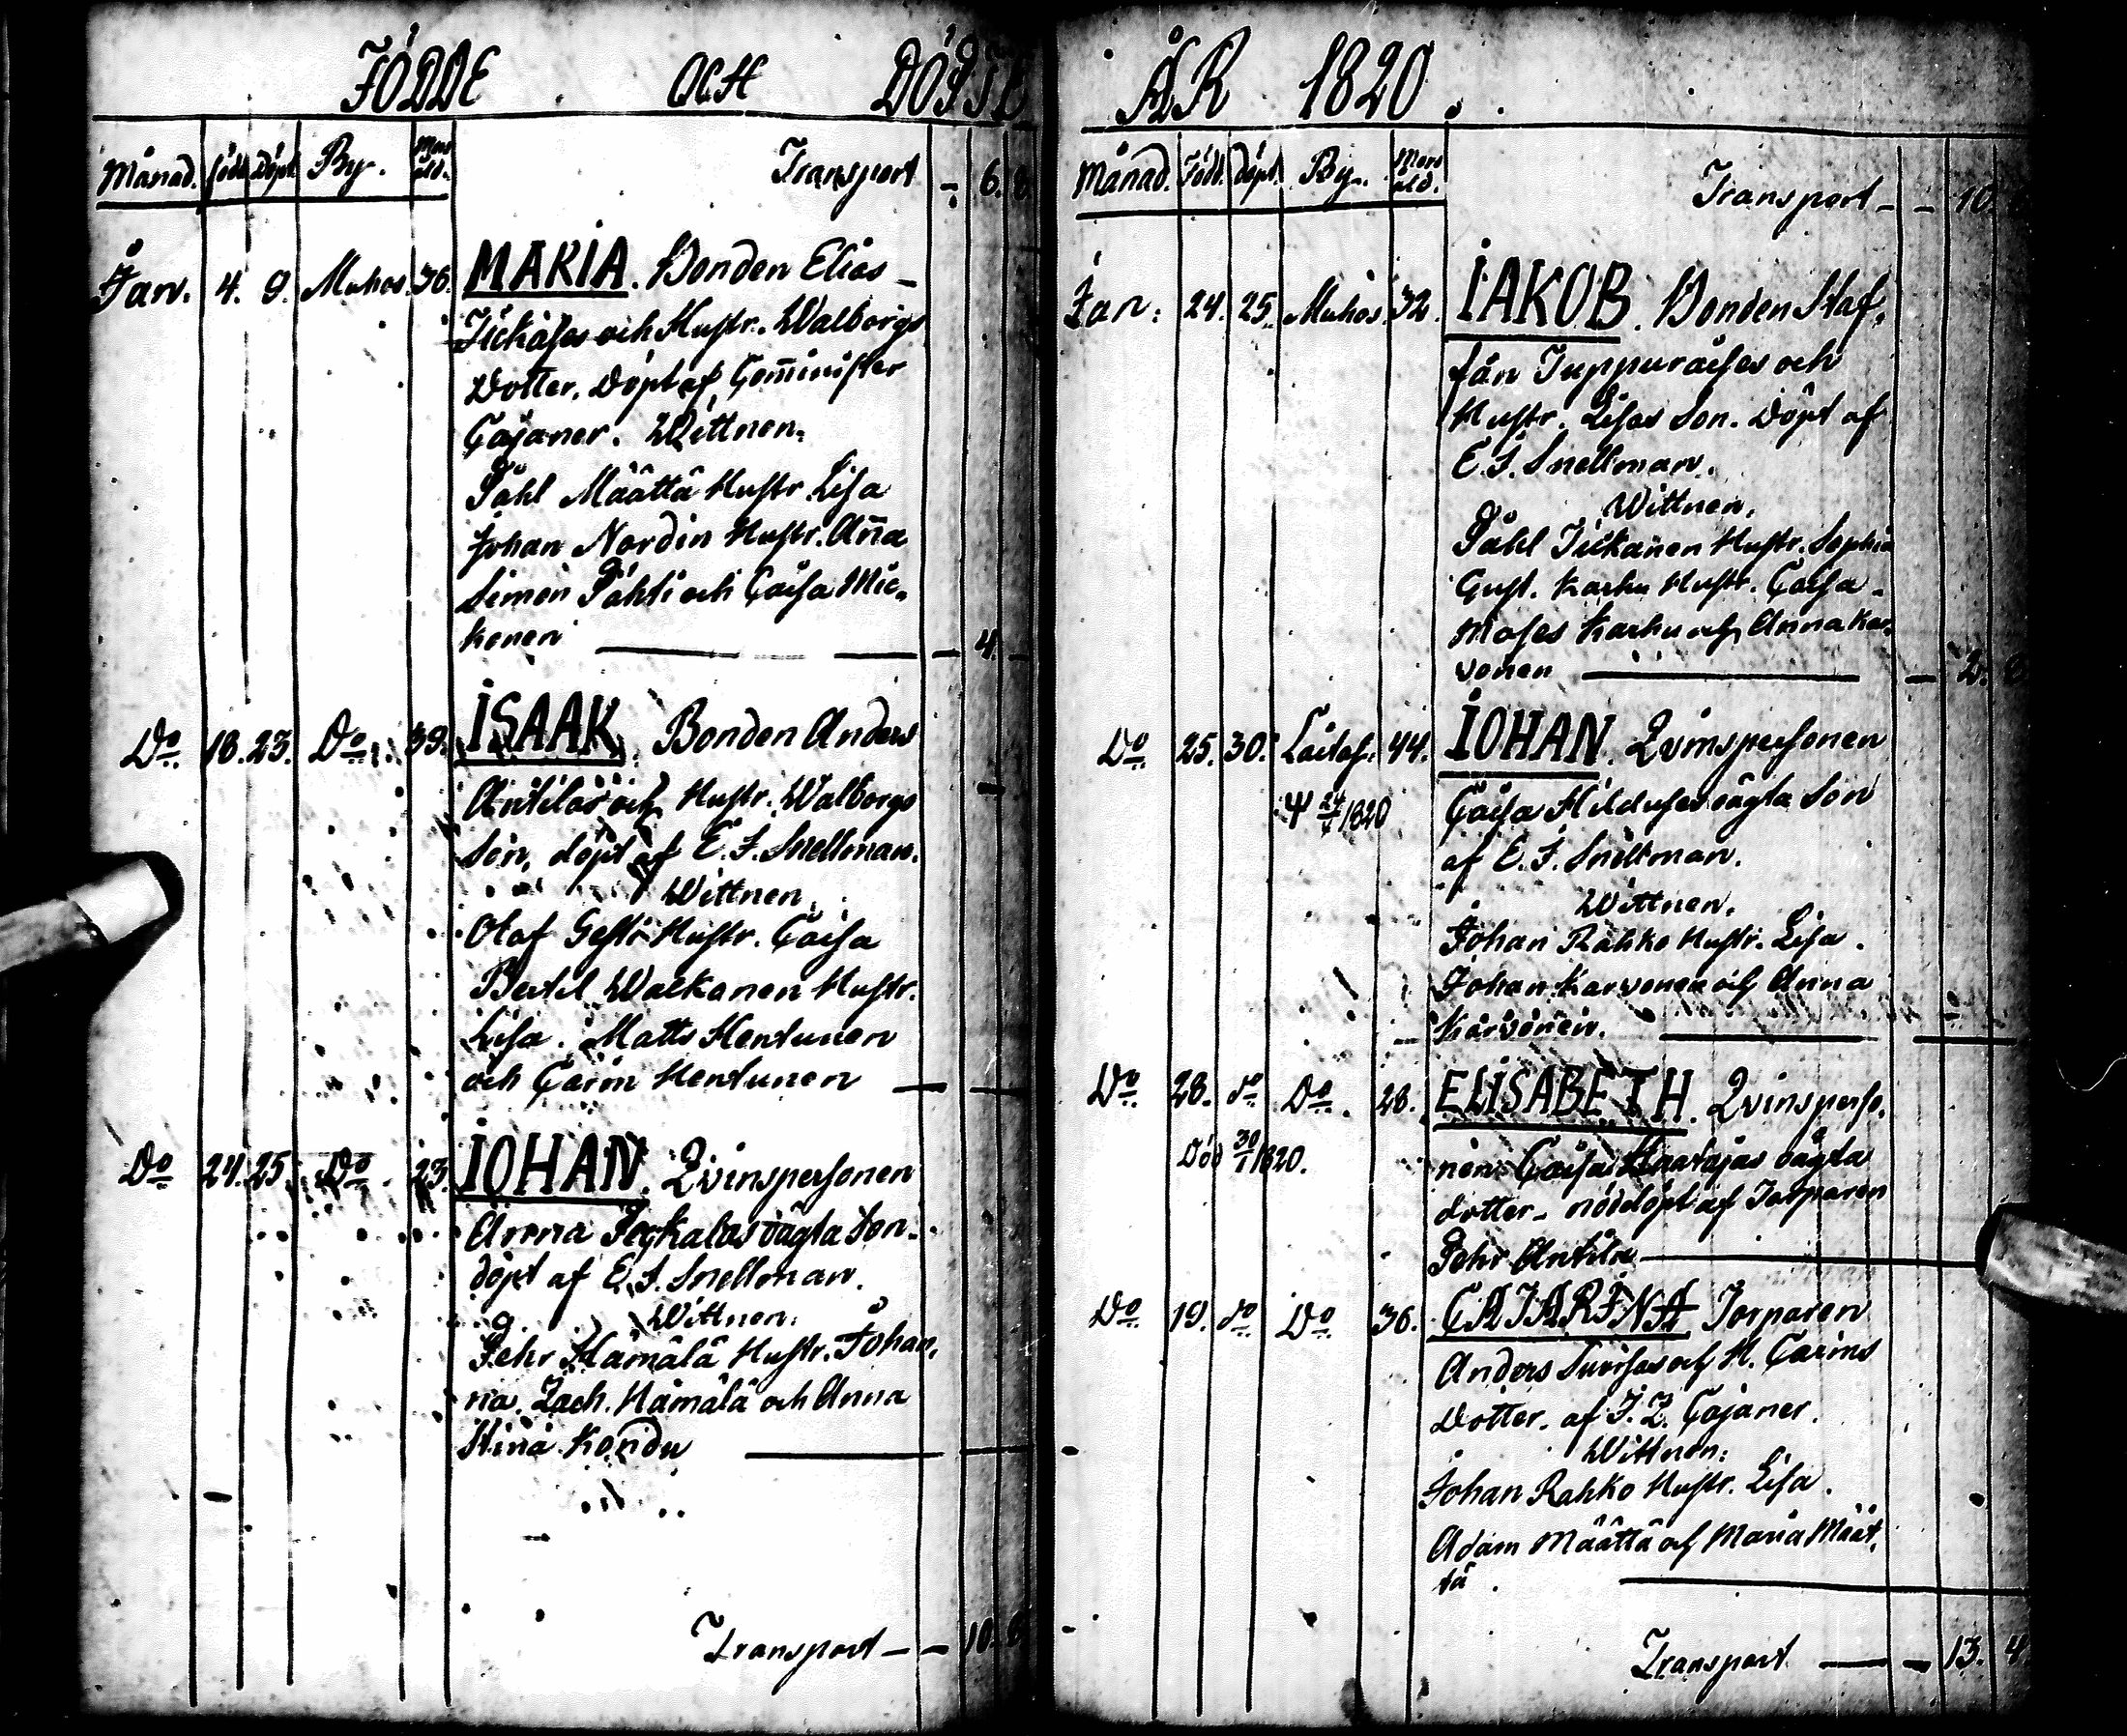 FÖDDE OCH DÖPTE
Månad. född. Döpt. By. Mors åld.
Transport - 6. 8
Jan. 4. 9. Muhos. 36. MARIA. Bonden Elias
och Hustr. Walborgs
Dotter. Döpt af Com̄inister
Cajaner. Wittnen.
Påhl Määttä Hustr. Lisa
Johan Nordin Hustr. An̄a
Simon Pähti och Caisa Mic-
konen — 4. —
Do 18. 23. Do 39. ISAAK. Bonden Anders
Antilas och Hustr. Walborgs
Son, döpt af E. J. Snellman.
Wittnen.
Olof Hustr. Caisa
Bertil Walkonen Hustr.
Lisa. Matts Hentunen
och Carin Hentunen — —
Do 24. 25. Do 23. IOHAN. Qvinspersonen
Anna oägta Son.
döpt af E. J. Snellman.
Wittnen.
Pehr Hämälä Hustr. Johan,
na. Zach. Hämälä och Anna
Stina Kondu —
Transport — — 10. 8
ÅR 1820.
Månad. Född. döpt. By. Mors åld.
Transport — — 10. 8
Jan. 24. 25. Muhos. 32. IAKOB. Bonden Staf,
fan Juppuraises och
Hustr. Lisas Son. Döpt af
E. J. Snellman.
Wittnen.
Påhl Tickanen Hustr. Sophia
Gust. Karhu Hustr. Caisa
Moses Karhu och Anna Kar,
vonen — — 2. 8
Do 25. 30. Laitas. 44. IOHAN. Qvinspersonen
24/4 1820 Caisa oägta Son
af E. J. Snellman.
Wittnen.
Johan Rahko Hustr. Lisa.
Johan Karvonen och Anna
Karvonen. —
Do 28. do Do 28. ELISABETH. Qvinsperso,
Död 30/1 1820. nen Caisa Haatajas oägta
dotter - nöddöpt af Torparen
Pehr Antila —
Do 19. do Do 36. CATARINA Torparen
Anders och H. Carins
Dotter. af J. Z. Cajaner.
Wittnen:
Johan Rahko Hustr. Lisa.
Adam Määttä och Maria Määt,
tä. —
Transport — — 13. 4